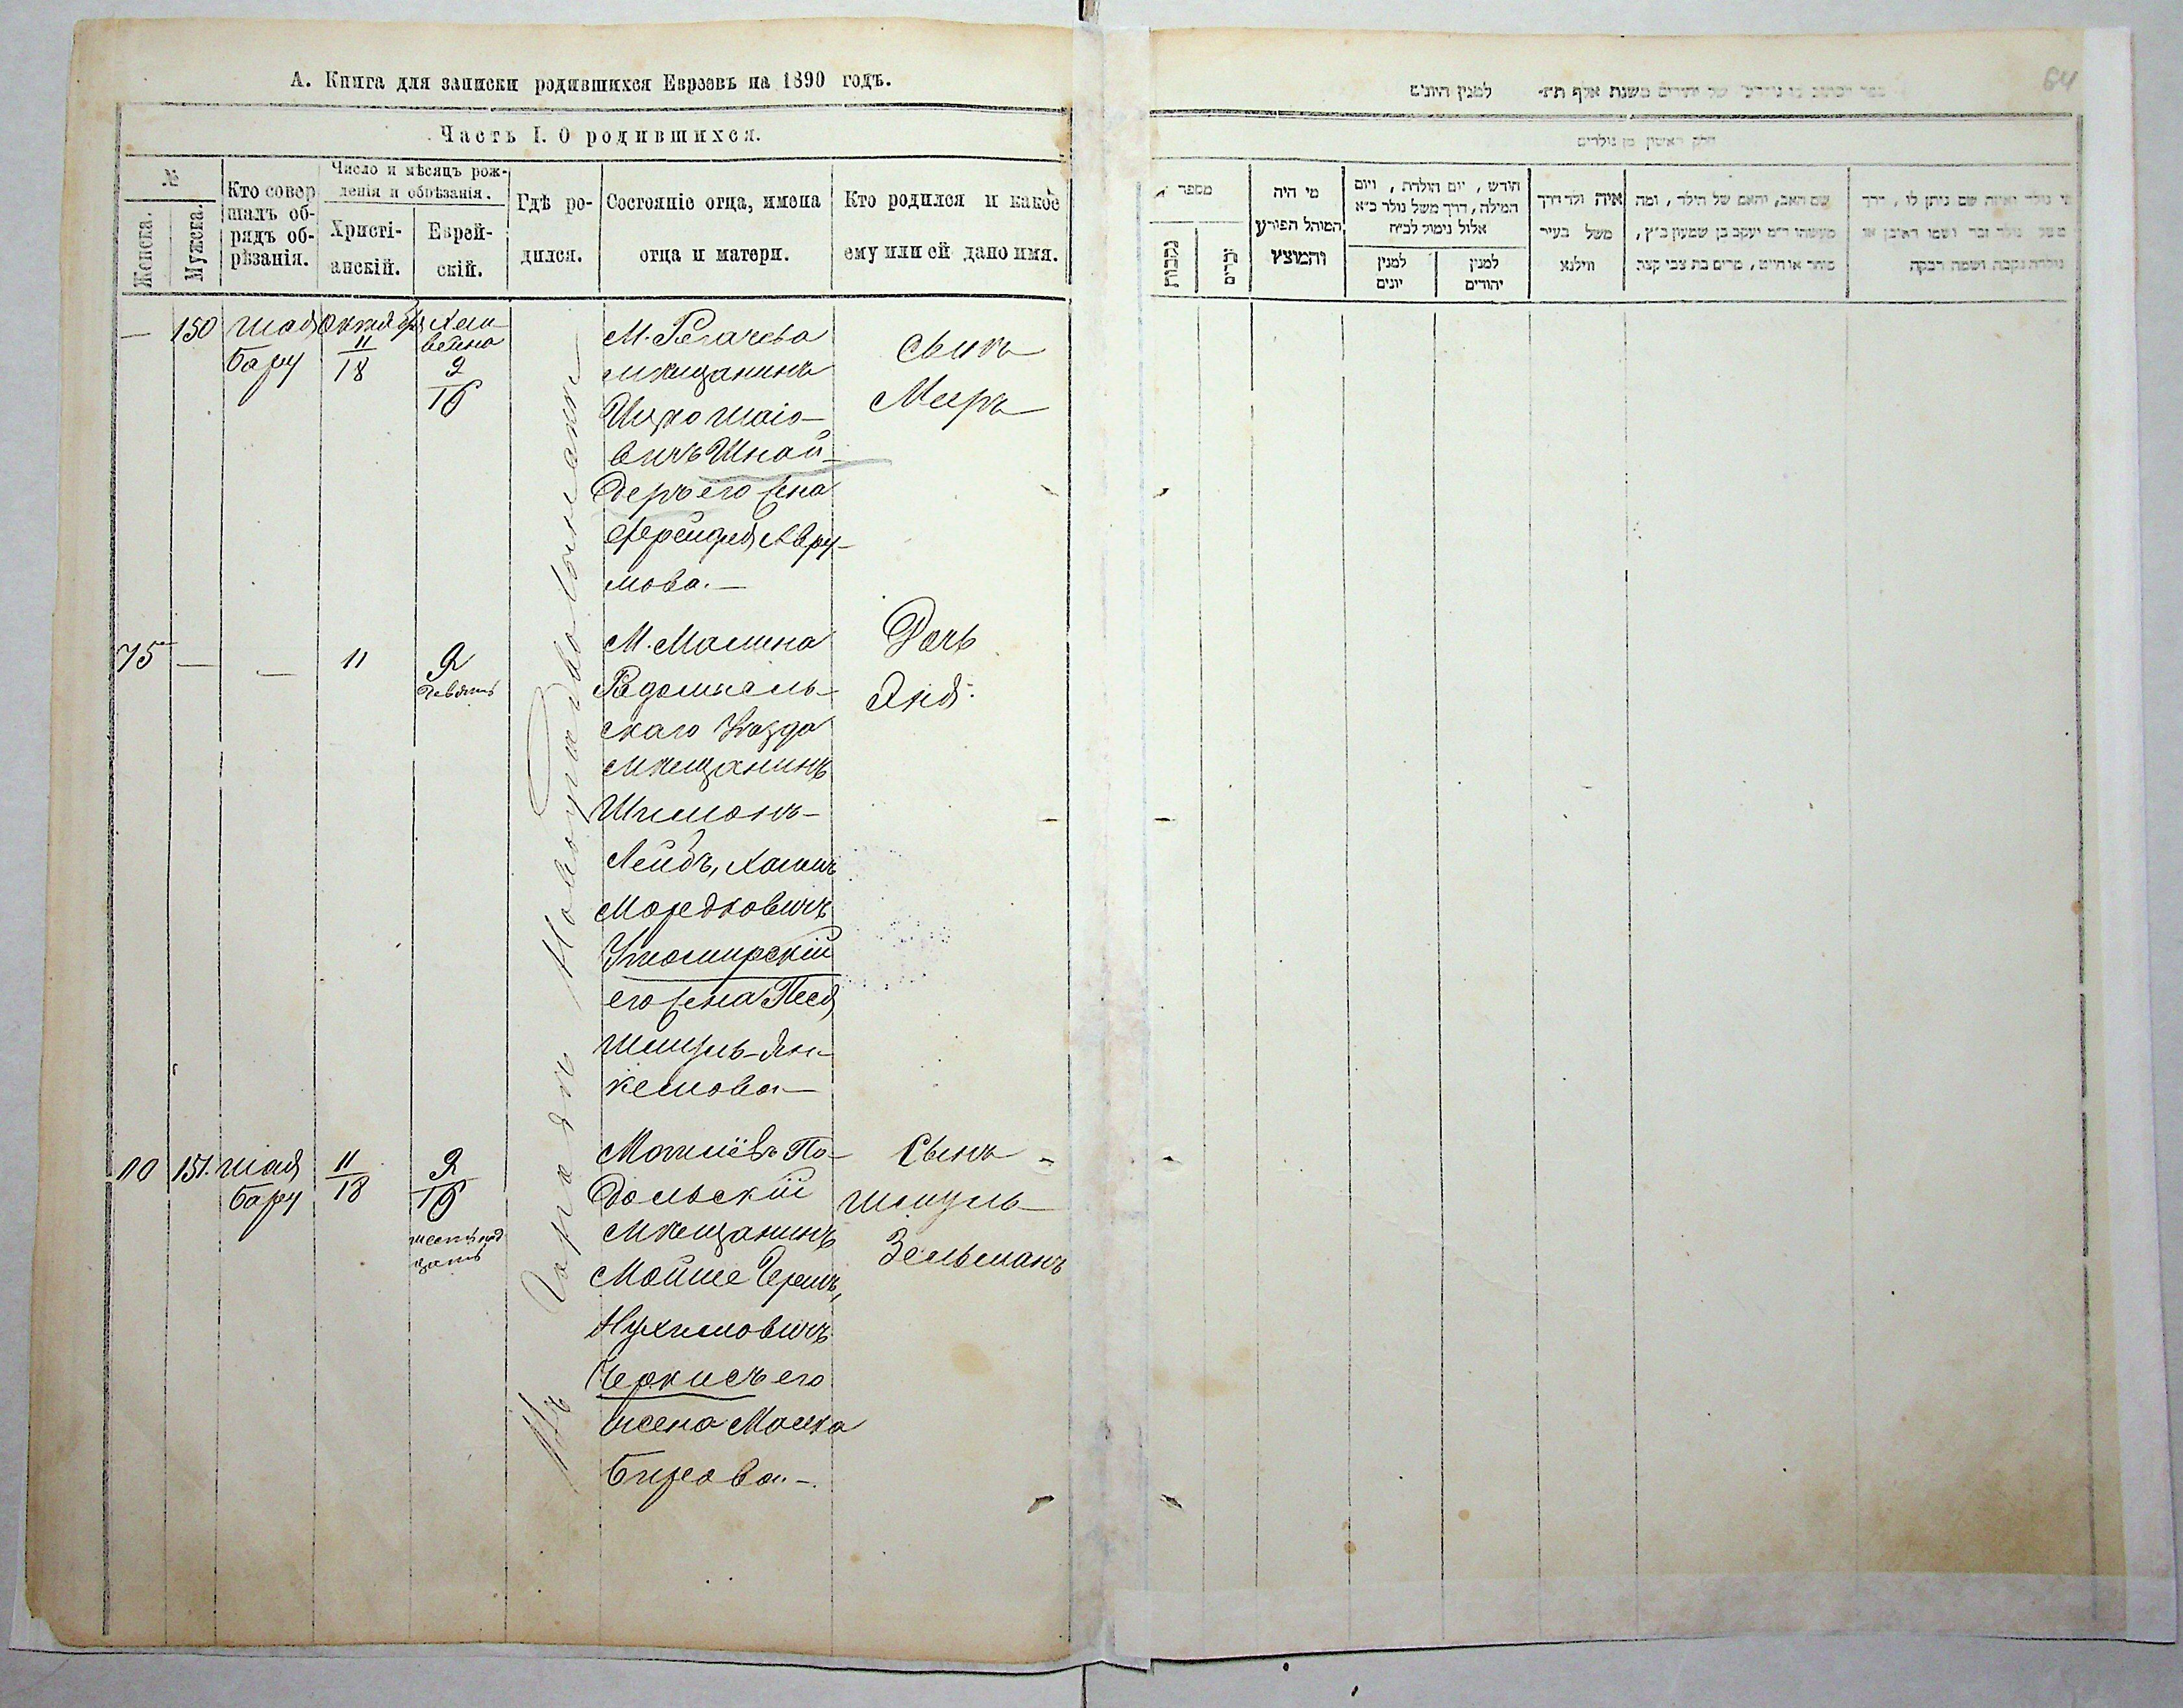 А. Книга для записки родившихся Евреевъ на 1890 годъ.
Часть I. О родившихся.
№
Женска.
Мужска.
Кто совер
шалъ об-
рядъ об-
рѣзанія.
Число и мѣсяцъ рож-
денія и обрѣзанія.
Христі-
анскій.
Еврей-
скій.
Гдѣ ро-
дился.
Состояніе отца, имена
отца и матери.
Кто родился и какое
ему или ей дано имя.
— 150
Шая
Бару
Октября
11
18
Хеш-
вейна
9
16
М. Рогачева
мѣщанинъ
Ицко Шаіо-
вичъ Шнай-
деръ его жена
Фрейдя Авру-
мова.—
Сынъ
Меръ
75 — —
11
9
девять
М. Малина
Радомысль-
скаго Уѣзда
мѣщанинъ
Шимонъ-
Лейбъ, Хаимъ
Мордковичъ
Житомирскій
его жена Песя
Шмуль-Ян-
келова—
Дочь
Яня.
151.
Шая
Бару
11
18
9
16
шестнад
цать
Могилёвъ По-
дольскій
мѣщанинъ
Мойше Гершъ,
Нухимовичъ
его
жена Малка
Берова.—
Сынъ
Шмуль
Зельманъ
Въ городѣ
64
למנין היונים
חלק ראשון מן נולדים
מספר
נקבות
זכרים
מי היה
המוהל הפורע
והמוצץ
חודש, יום הולדת, ויום
המילה, דרך משל נולד כ״א
אלול נימול לכ״ח
למנין
יונים
למנין
יהודים
איה ולד דרך
משל בעיר
ווילנא
שם האב, והאם של הילד, ומה
מעשהו ר״מ יעקב בן שמעון כ״ץ,
סוחר או חייט, מרים בת צבי קצב
מי נולד ואיזה שם ניתן לו, דרך
משל נולד זכר ושמו ראובן או
נולדה נקבה ושמה רבקה